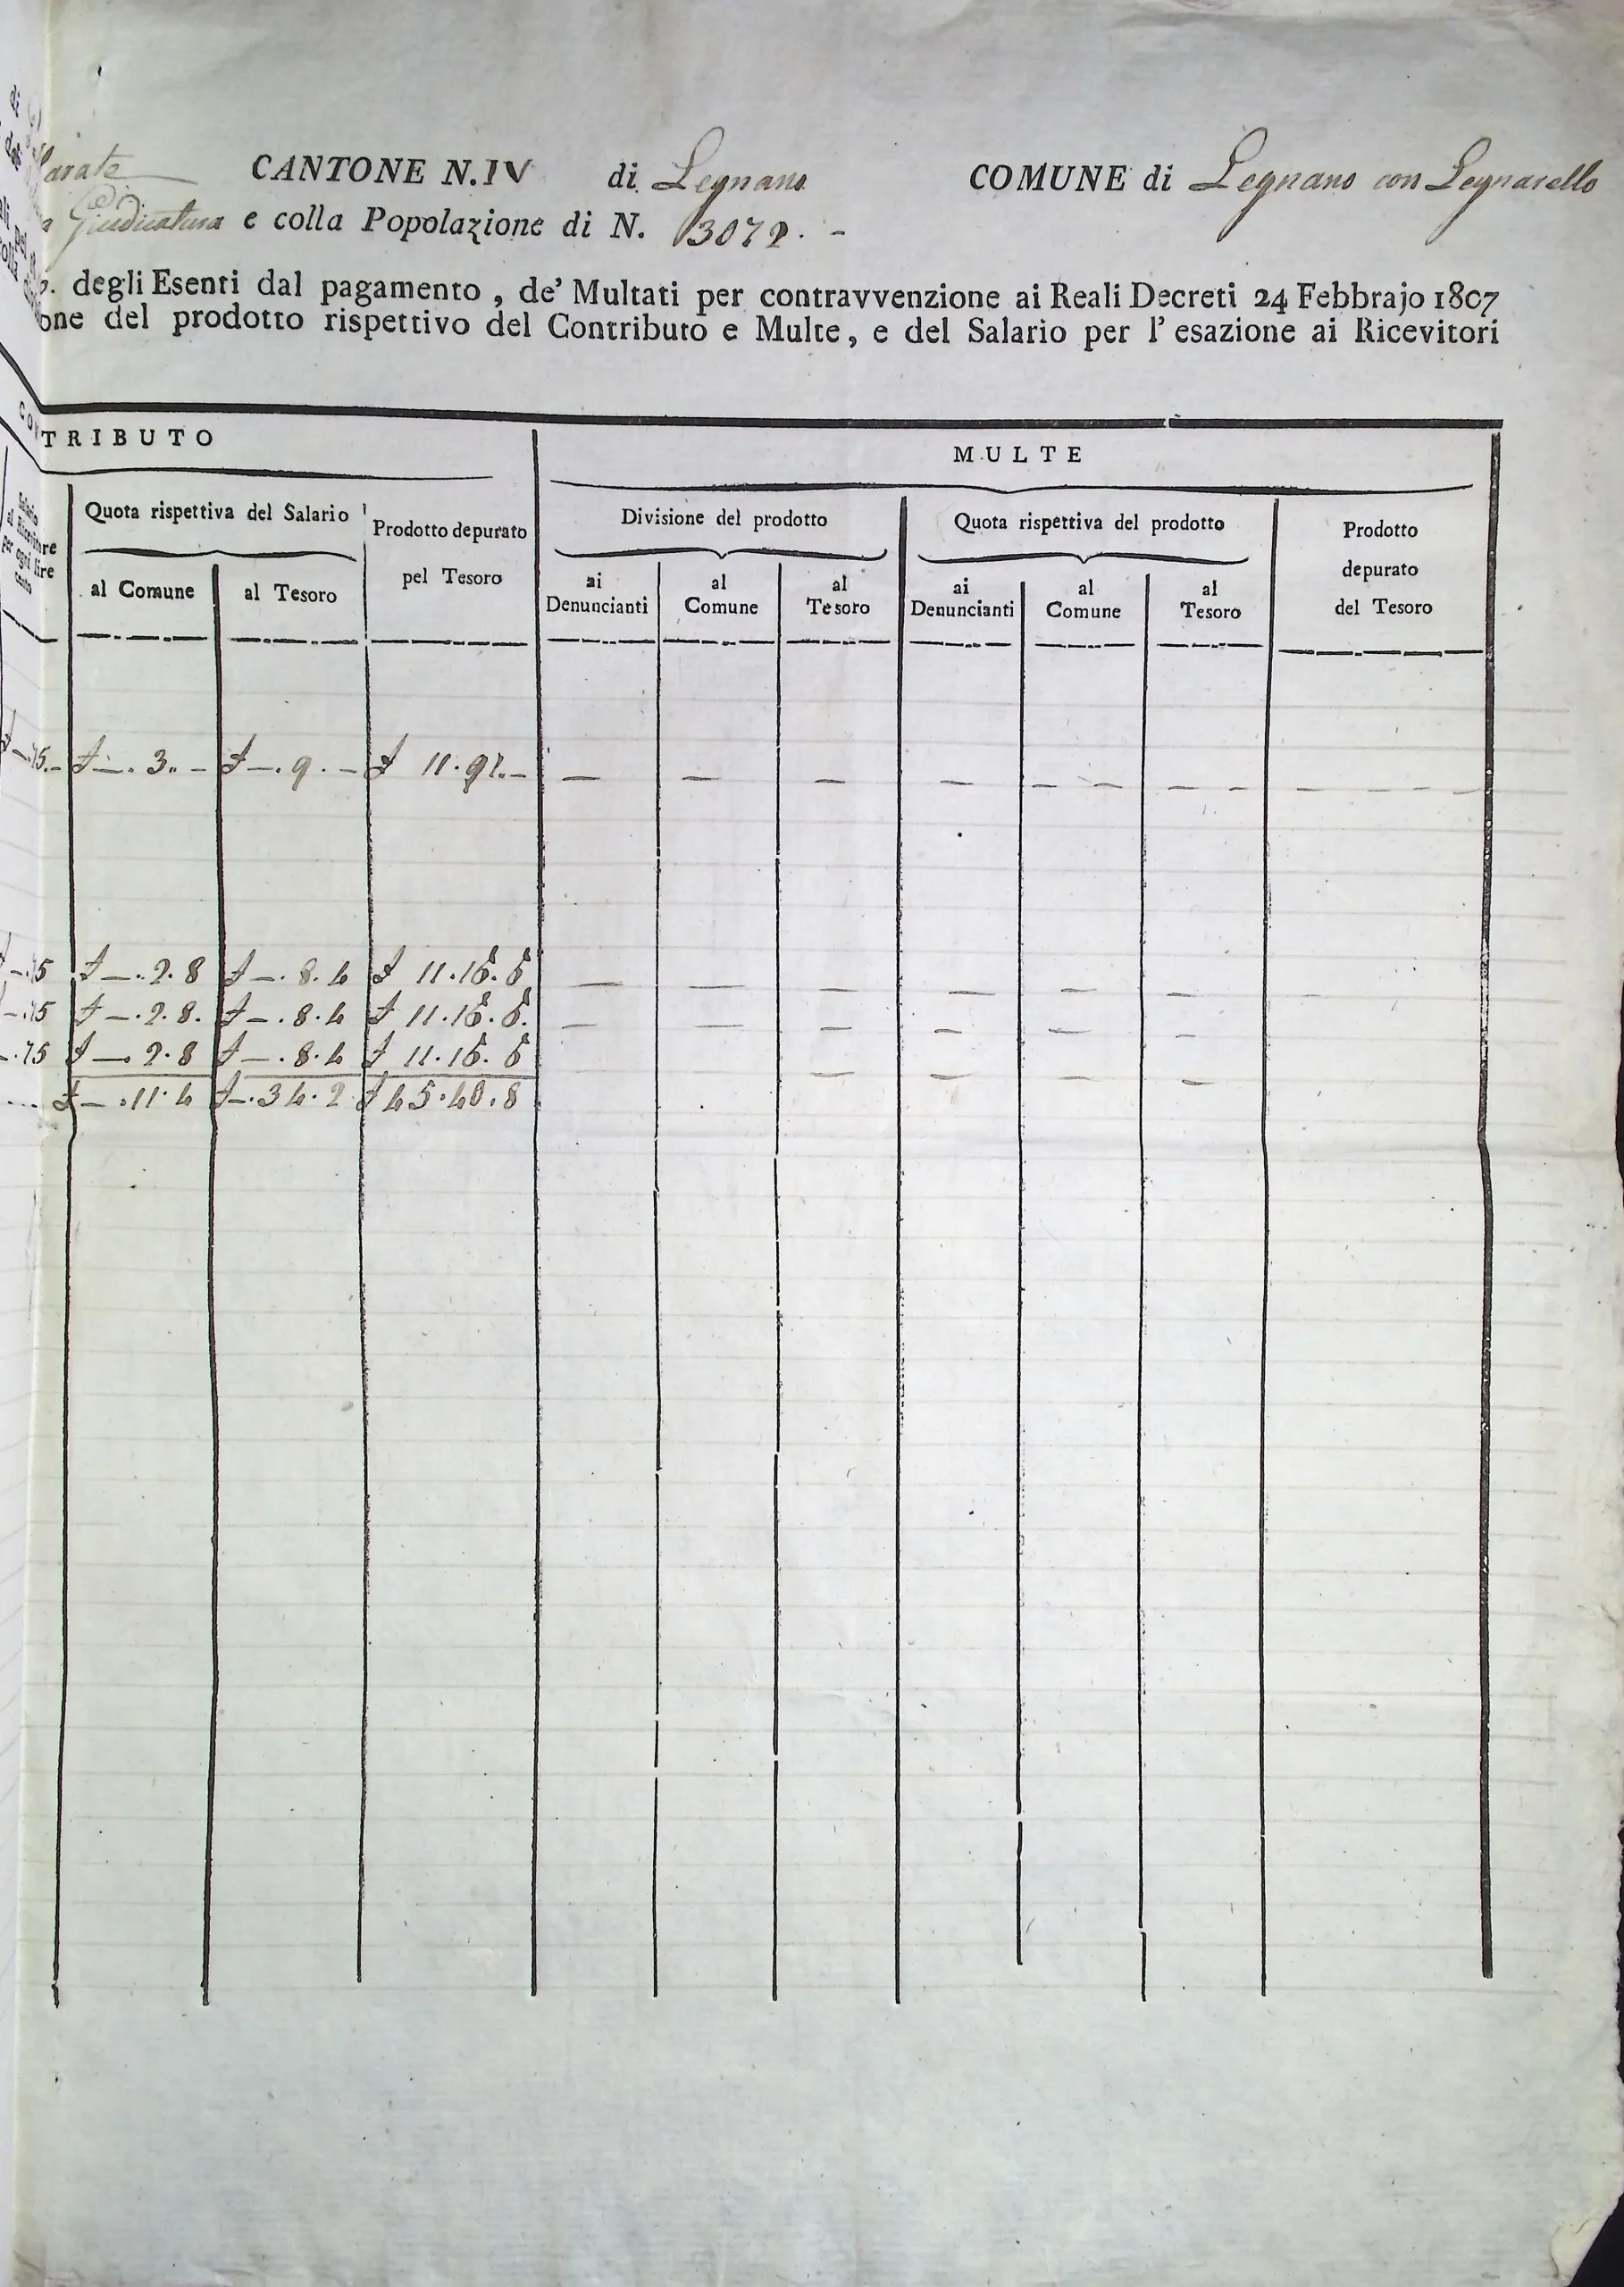 larate CANTONE N. IV di Legnano COMUNE di Legnano con Legnarello
a Giudicatura e colla Popolazione di N. 3072. -
degli Esenti dal pagamento, de' Multati per contravvenzione ai Reali Decreti 24 Febbrajo 1807
one del prodotto rispettivo del Contributo e Multe, e del Salario per l' esazione ai Ricevitori
CONTRIBUTO
MULTE
Salario al Ricevitore per ogni lire cento
Quota rispettiva del Salario
al Comune
al Tesoro
Prodotto depurato
pel Tesoro
Divisione del prodotto
ai Denuncianti
al Comune
al Tesoro
Quota rispettiva del prodotto
ai Denuncianti
al Comune
al Tesoro
Prodotto
depurato
del Tesoro
£ —.75.- £ —. 3. - £ —. 9. — £ 11. 91. - — — — — — — — — — — — —
£ —.75 £ —. 2. 8 £ —. 8. 4 £ 11. 16. 6 — — — — — —
—.75 £ —. 2. 8. £ —. 8. 4 £ 11. 16. 6. — — — — — —
—.75 £ —. 2. 8 £ —. 8. 4 £ 11. 16. 6 — — — —
.... £ —. 11. 4 £ —. 34. 2 £ 45. 40. 8